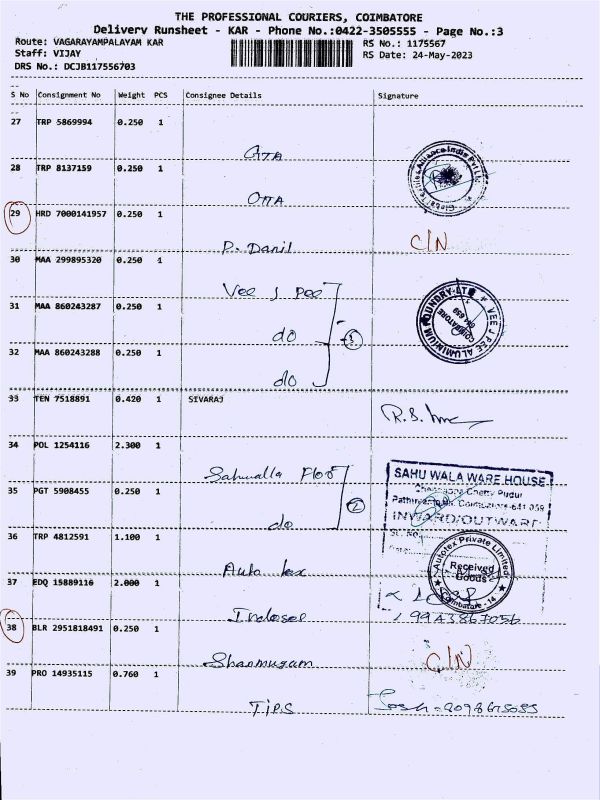 THE PROFESSIONAL COURIERS, COIMBATORE
Delivery Runsheet - KAR - Phone No.:0422-3505555 - Page No.:3
Route: VAGARAYAMPALAYAM KAR RS No.: 1175567
Staff: VIJAY RS Date: 24-May-2023
DRS No.: DCJB117556703
S No Consignment No Weight PCS Consignee Details Signature
27 TRP 5869994 0.250 1
GTA
28 TRP 8137159 0.250 1
OTTA
29 HRD 7000141957 0.250 1
P. Danil C/N
30 MAA 299895320 0.250 1
Vee J Pee
31 MAA 860243287 0.250 1
do 3
32 MAA 860243288 0.250 1
do
VEE J PEE ALUMINIUM FOUNDRY-LTD
COIMBATORE
641 659
33 TEN 7518891 0.420 1 SIVARAJ
R.S.
34 POL 1254116 2.300 1
Sahualla
35 PGT 5908455 0.250 1
do 2
SAHU WALA WARE HOUSE
Chetty Pudur
Coimbatore-641 059
INWARD/OUTWART
SL. NO.
36 TRP 4812591 1.100 1
Auto tex
Autotex Private Limited
Received Goods
Coimbatore - 14
37 EDQ 15889116 2.000 1
Indosel 9943867056
38 BLR 2951818491 0.250 1
Shanmugam C/N
39 PRO 14935115 0.760 1
TiPS